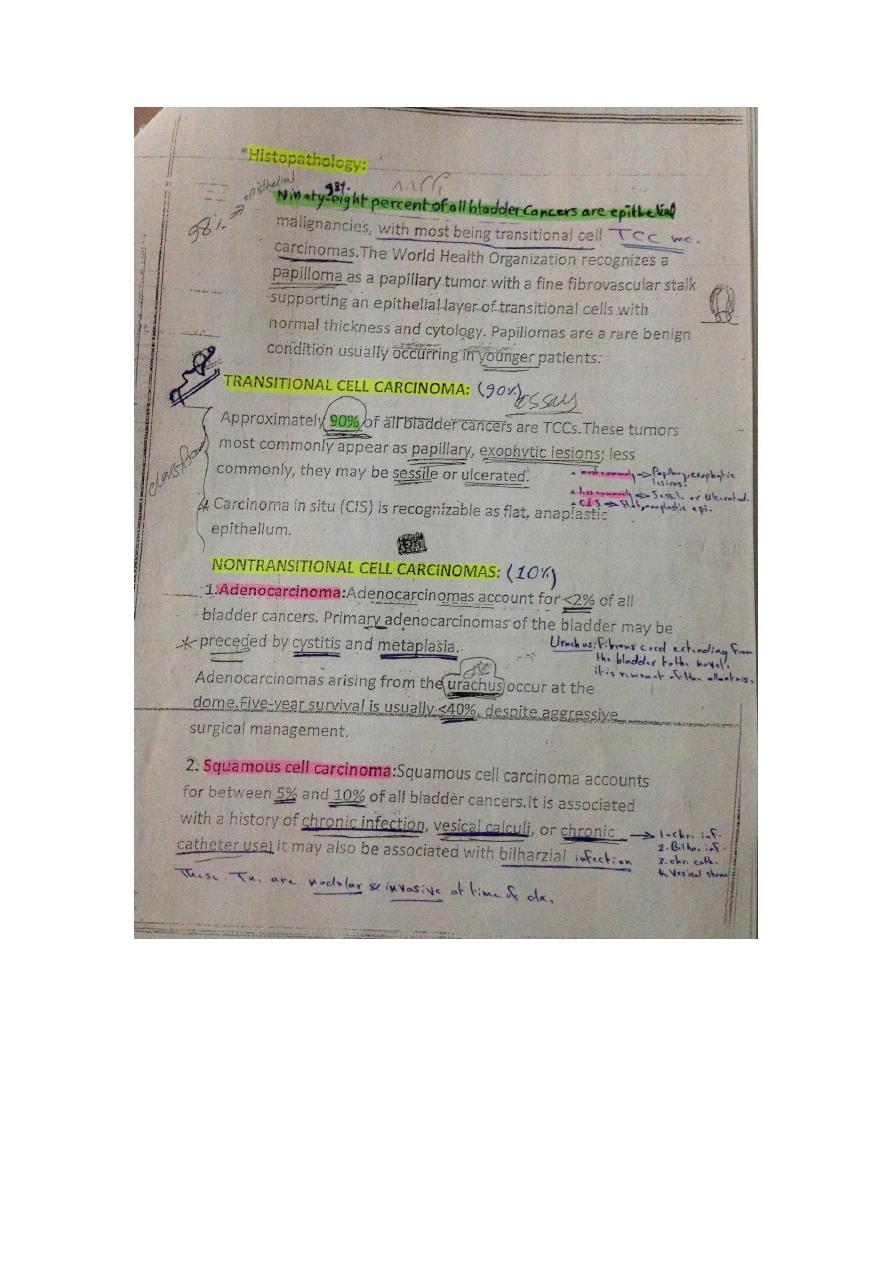 *Histopathology:
98% => epithelial
98%
Ninety-eight percent of all bladder Cancers are epithelial
malignancies, with most being transitional cell TCC mc.
carcinomas.The World Health Organization recognizes a
papilloma as a papillary tumor with a fine fibrovascular stalk
supporting an epithelial layer of transitional cells with
normal thickness and cytology. Papillomas are a rare benign
condition usually occurring in younger patients.
TRANSITIONAL CELL CARCINOMA: (90%) essay
Approximately 90% of all bladder cancers are TCCs.These tumors
most commonly appear as papillary, exophytic lesions; less
commonly, they may be sessile or ulcerated.
* most commonly => Papillary, exophytic
lesions.
* less commonly => Sessile or ulcerated.
* CIS => Flat, anaplastic epi.
* Carcinoma in situ (CIS) is recognizable as flat, anaplastic
epithelium.
NONTRANSITIONAL CELL CARCINOMAS: (10%)
1.Adenocarcinoma:Adenocarcinomas account for <2% of all
bladder cancers. Primary adenocarcinomas of the bladder may be
* preceded by cystitis and metaplasia.
Urachus: Fibrous cord extending from
the bladder to the navel.
it is remnant of the allantois.
Adenocarcinomas arising from the urachus occur at the
dome.Five-year survival is usually <40%, despite aggressive
surgical management.
2. Squamous cell carcinoma:Squamous cell carcinoma accounts
for between 5% and 10% of all bladder cancers.It is associated
with a history of chronic infection, vesical calculi, or chronic
catheter use. it may also be associated with bilharzial infection
1- chr. inf.
2- Bilha. inf.
3. chr. cath.
4. Vesical stone
These Tu. are nodular & invasive at time of dx.